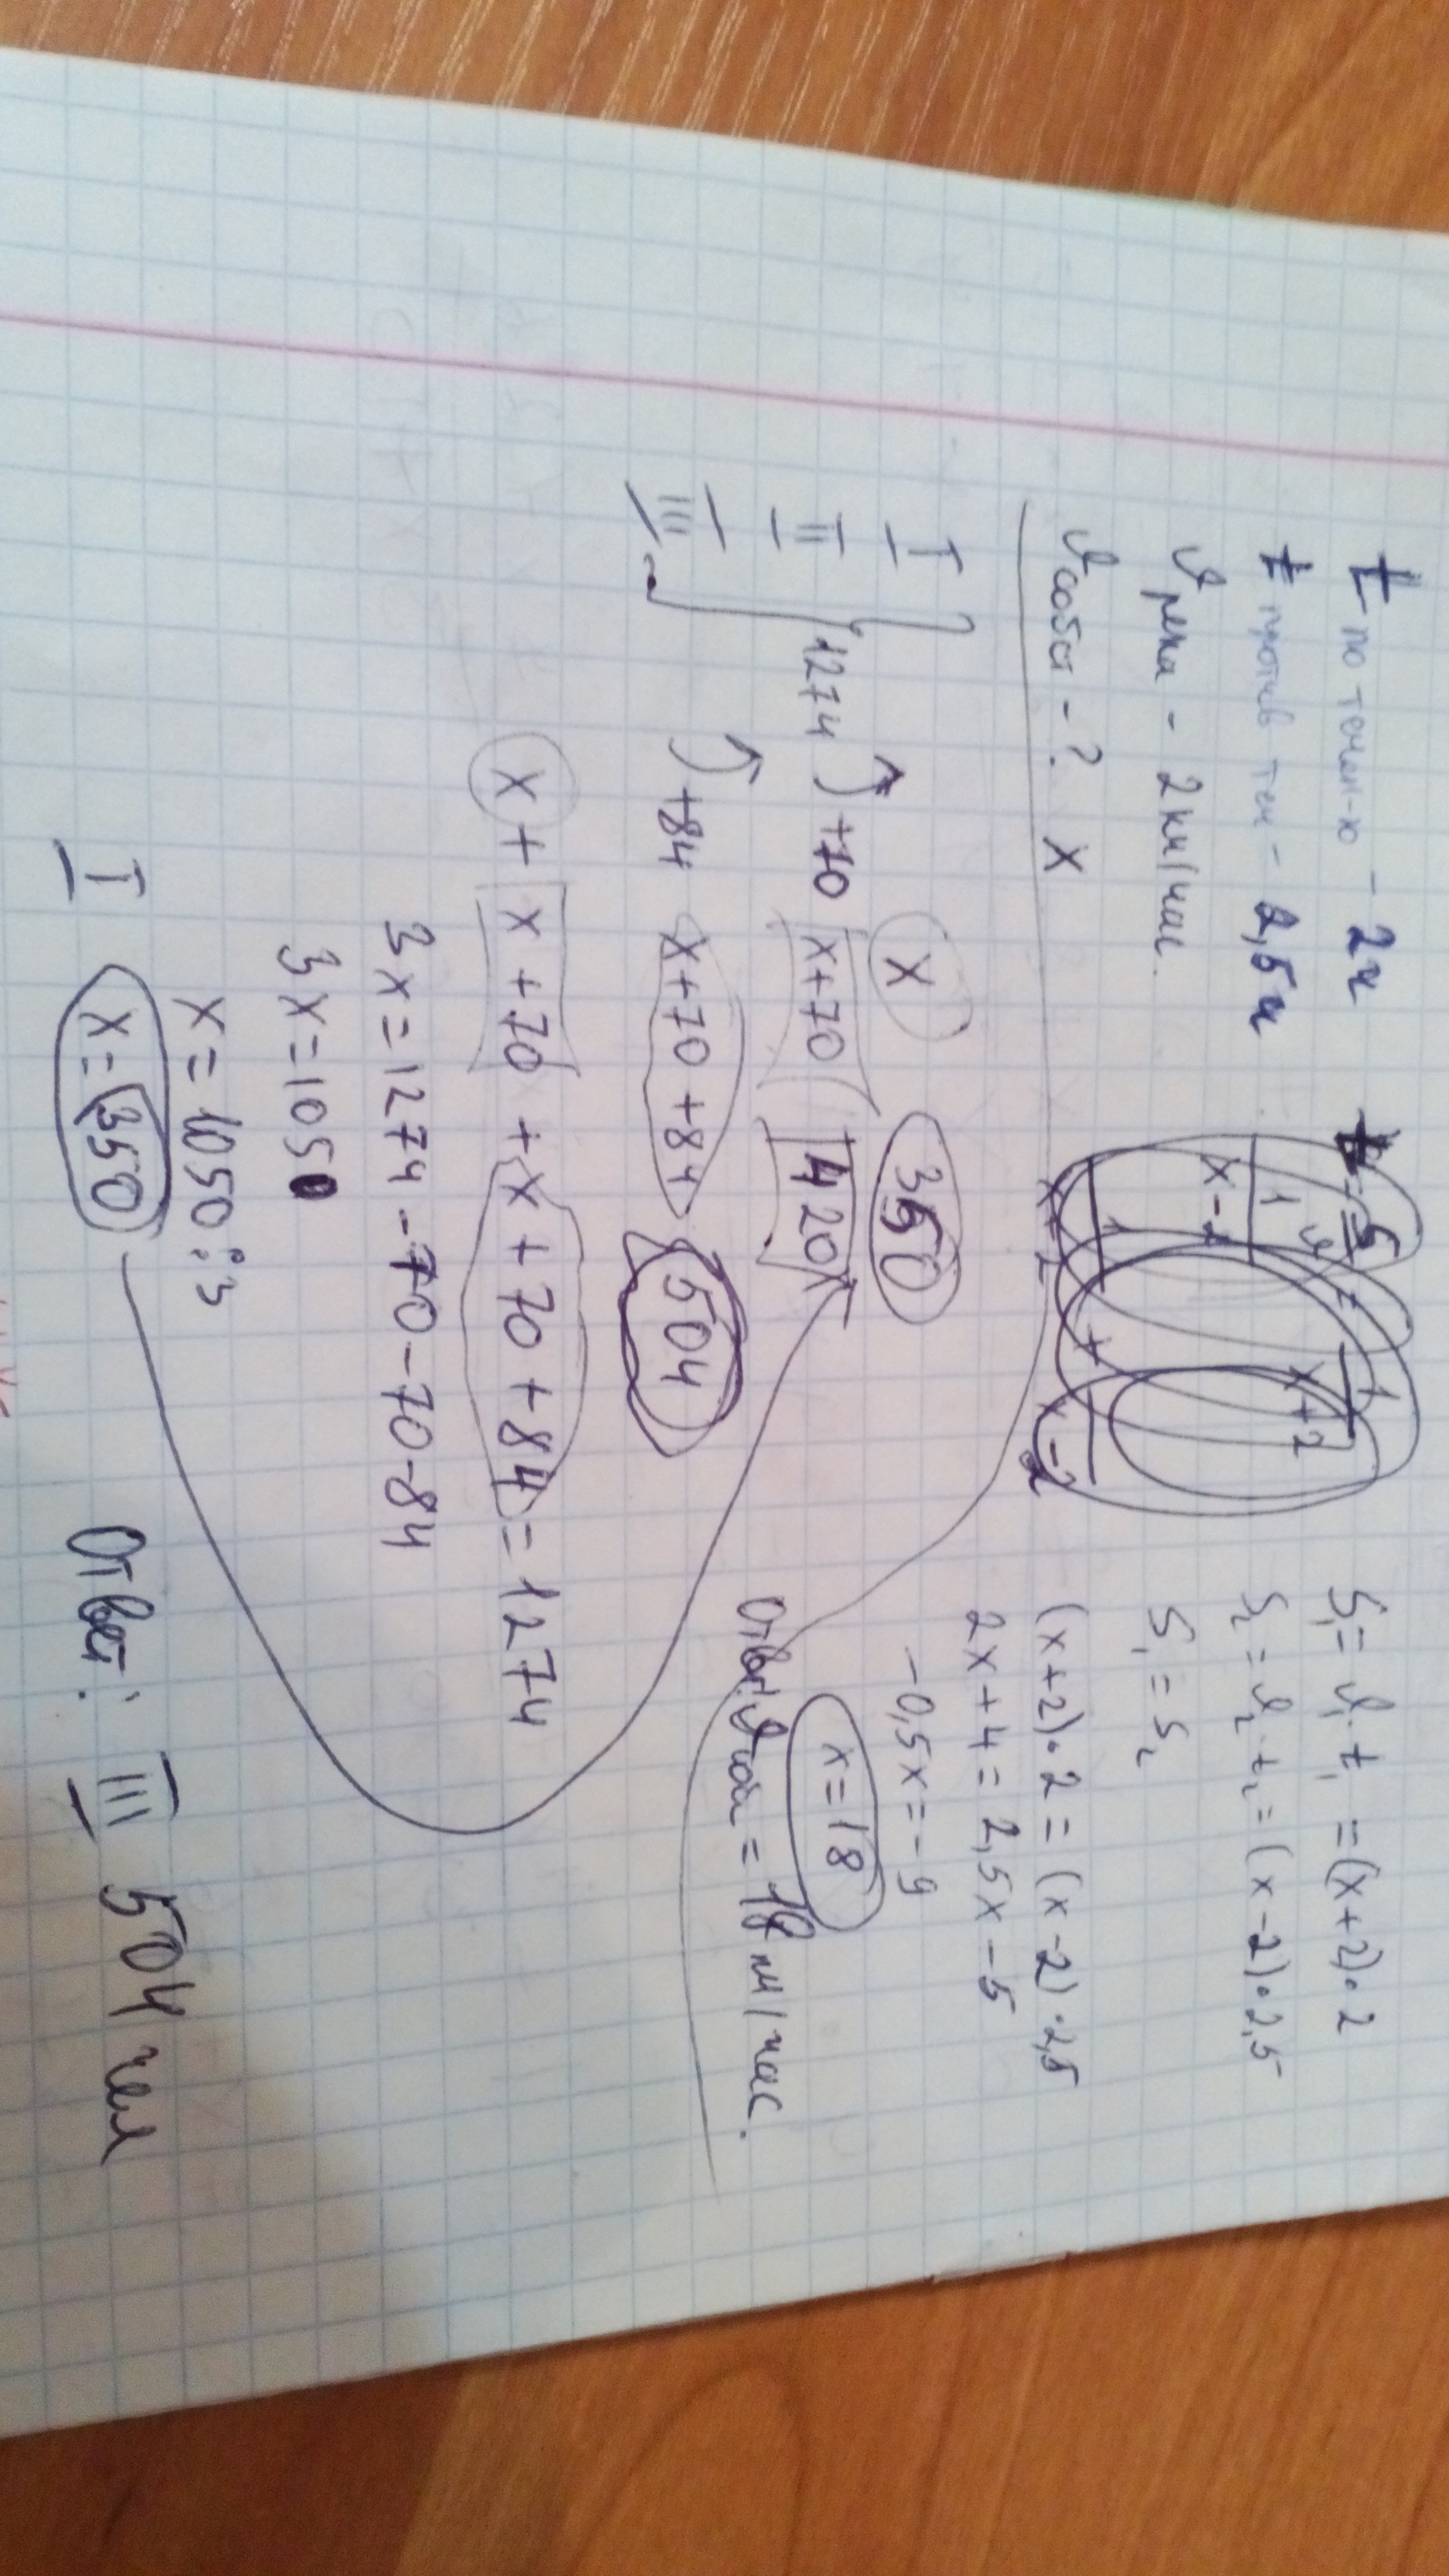 t по течен-ю - 2ч
t против теч - 2,5ч
v реки - 2 км/час.
v собст - ? x
S₁ = v₁·t₁ = (x+2)·2
S₂ = v₂·t₂ = (x-2)·2,5
S₁ = S₂
(x+2)·2 = (x-2)·2,5
2x+4 = 2,5x-5
-0,5x = -9
x=18
Ответ: = 18 км/час.
I x 350
II 1274 +70 x+70 420
III +84 x+70+84 504
x + x+70 + x+70+84 = 1274
3x = 1274-70-70-84
3x = 1050
x = 1050:3
I x = 350
Ответ: III 504 чел